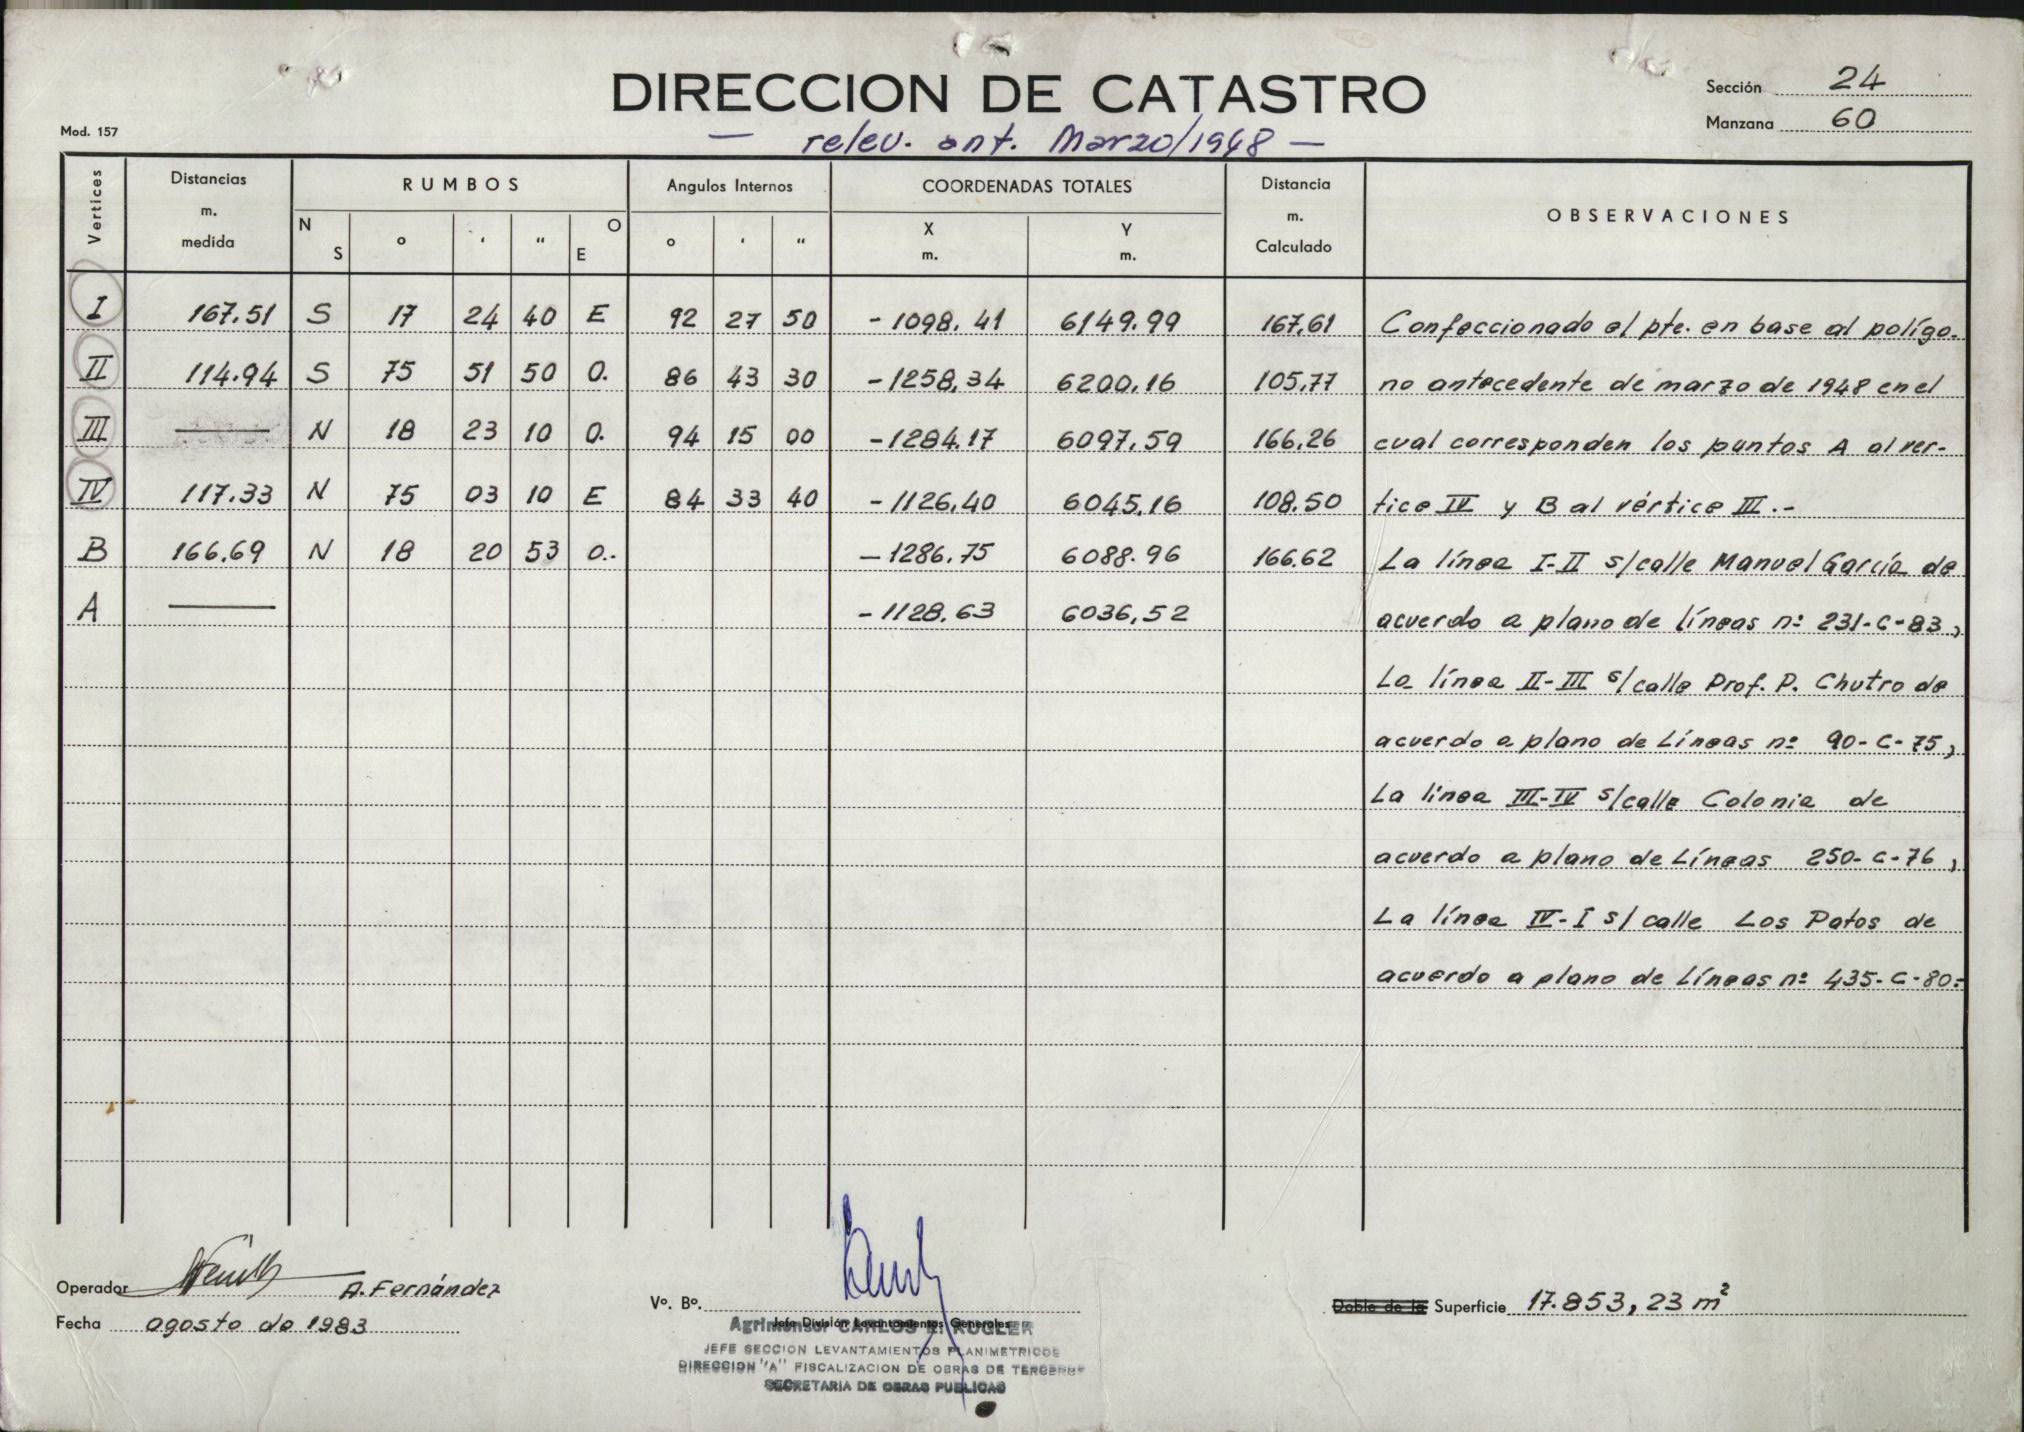 DIRECCION DE CATASTRO
Sección 24
Manzana 60
Mod. 157
— relev. ant. Marzo/1948 —
Vertices Distancias m. medida RUMBOS N S ° ' " O E Angulos Internos ° ' " COORDENADAS TOTALES X m. Y m. Distancia m. Calculado OBSERVACIONES
I 167.51 S 17 24 40 E 92 27 50 -1098.41 6149.99 167,61 Confeccionado el pte. en base al polígo-
II 114.94 S 75 51 50 O. 86 43 30 -1258,34 6200,16 105,77 no antecedente de marzo de 1948 en el
III — N 18 23 10 O. 94 15 00 -1284.17 6097,59 166,26 cual corresponden los puntos A al ver-
IV 117.33 N 75 03 10 E 84 33 40 -1126,40 6045,16 108,50 tice IV y B al vértice III.-
B 166.69 N 18 20 53 O.. -1286.75 6088.96 166.62 La línea I-II s/calle Manuel García de
A — -1128.63 6036,52 acuerdo a plano de líneas nº 231-C-83,
La línea II-III s/calle Prof. P. Chutro de
acuerdo a plano de Líneas nº 90-C-75,
La línea III-IV s/calle Colonia de
acuerdo a plano de Líneas 250-C-76,
La línea IV-I s/calle Los Patos de
acuerdo a plano de Líneas nº 435-C-80.-
Operador A. Fernández
Fecha agosto de 1983
Vº. Bº.
Jefe División Levantamientos Generales
Agrimensor CARLOS E. KUGLER
JEFE SECCION LEVANTAMIENTOS PLANIMETRICOS
DIRECCION "A" FISCALIZACION DE OBRAS DE TERCEROS
SECRETARIA DE OBRAS PUBLICAS
Doble de la Superficie 17.853,23 m²